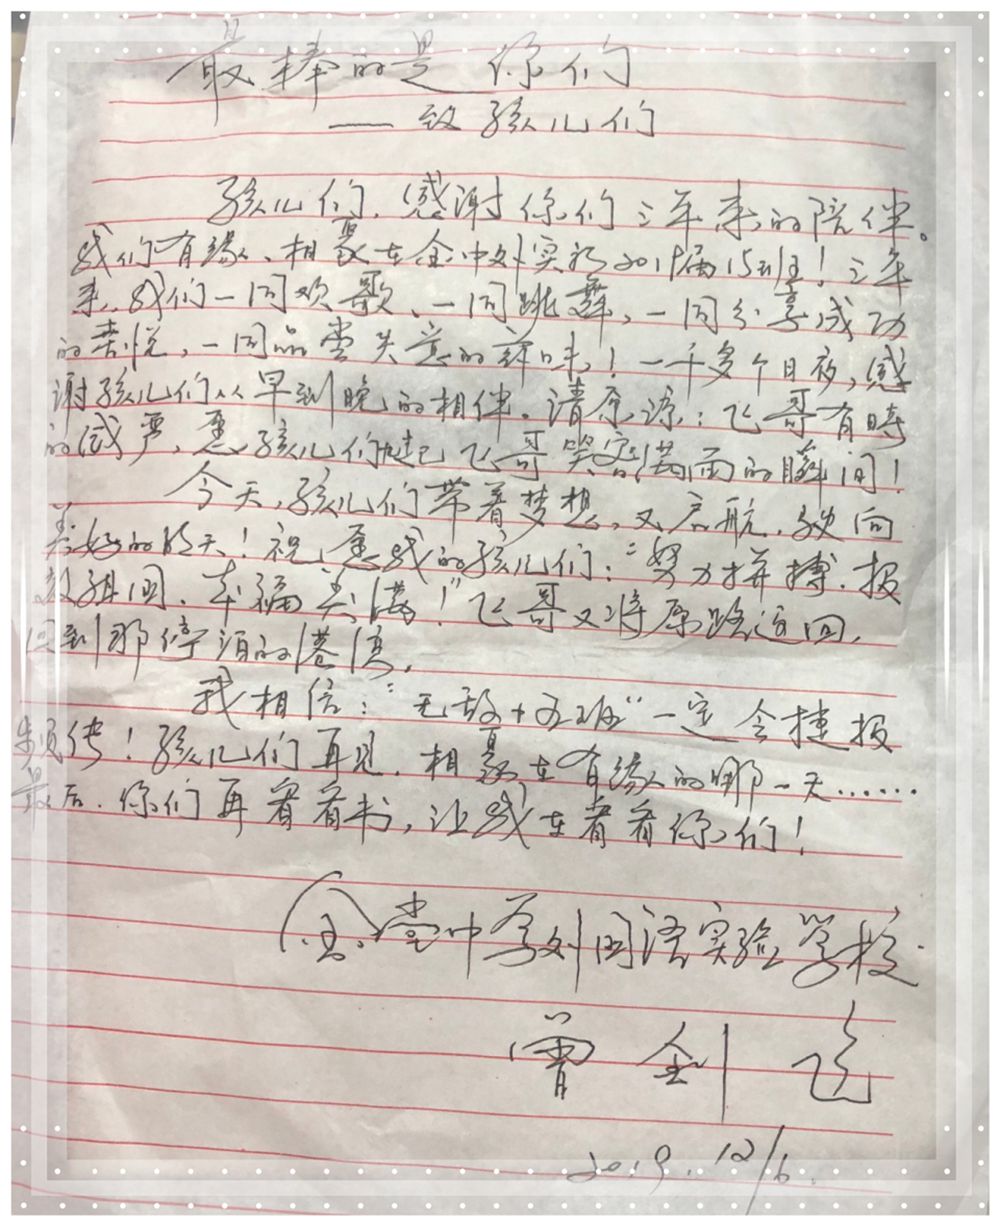 最棒的是你们
——致孩儿们
孩儿们，感谢你们三年来的陪伴。
我们有缘、相聚在金中外实初2019届15班！三年
来，我们一同欢歌、一同跳舞，一同分享成功
的喜悦，一同品尝失意的苦味！一千多个日夜，感
谢孩儿们从早到晚的相伴。请原谅：飞哥有时
的威严，愿孩儿们忆起飞哥笑容满面的瞬间！
今天，孩儿们带着梦想，又启航，驶向
美好的明天！祝愿我的孩儿们：“努力拼搏，报
效祖国、幸福美满！”飞哥又将原路返回，
回到那停泊的港湾。
我相信：“无敌十五班”一定会捷报
频传！孩儿们再见，相聚在有缘的哪一天……
最后，你们再看看书，让我在看看你们！
金堂中学外国语实验学校
曾剑飞
2019.12/6.